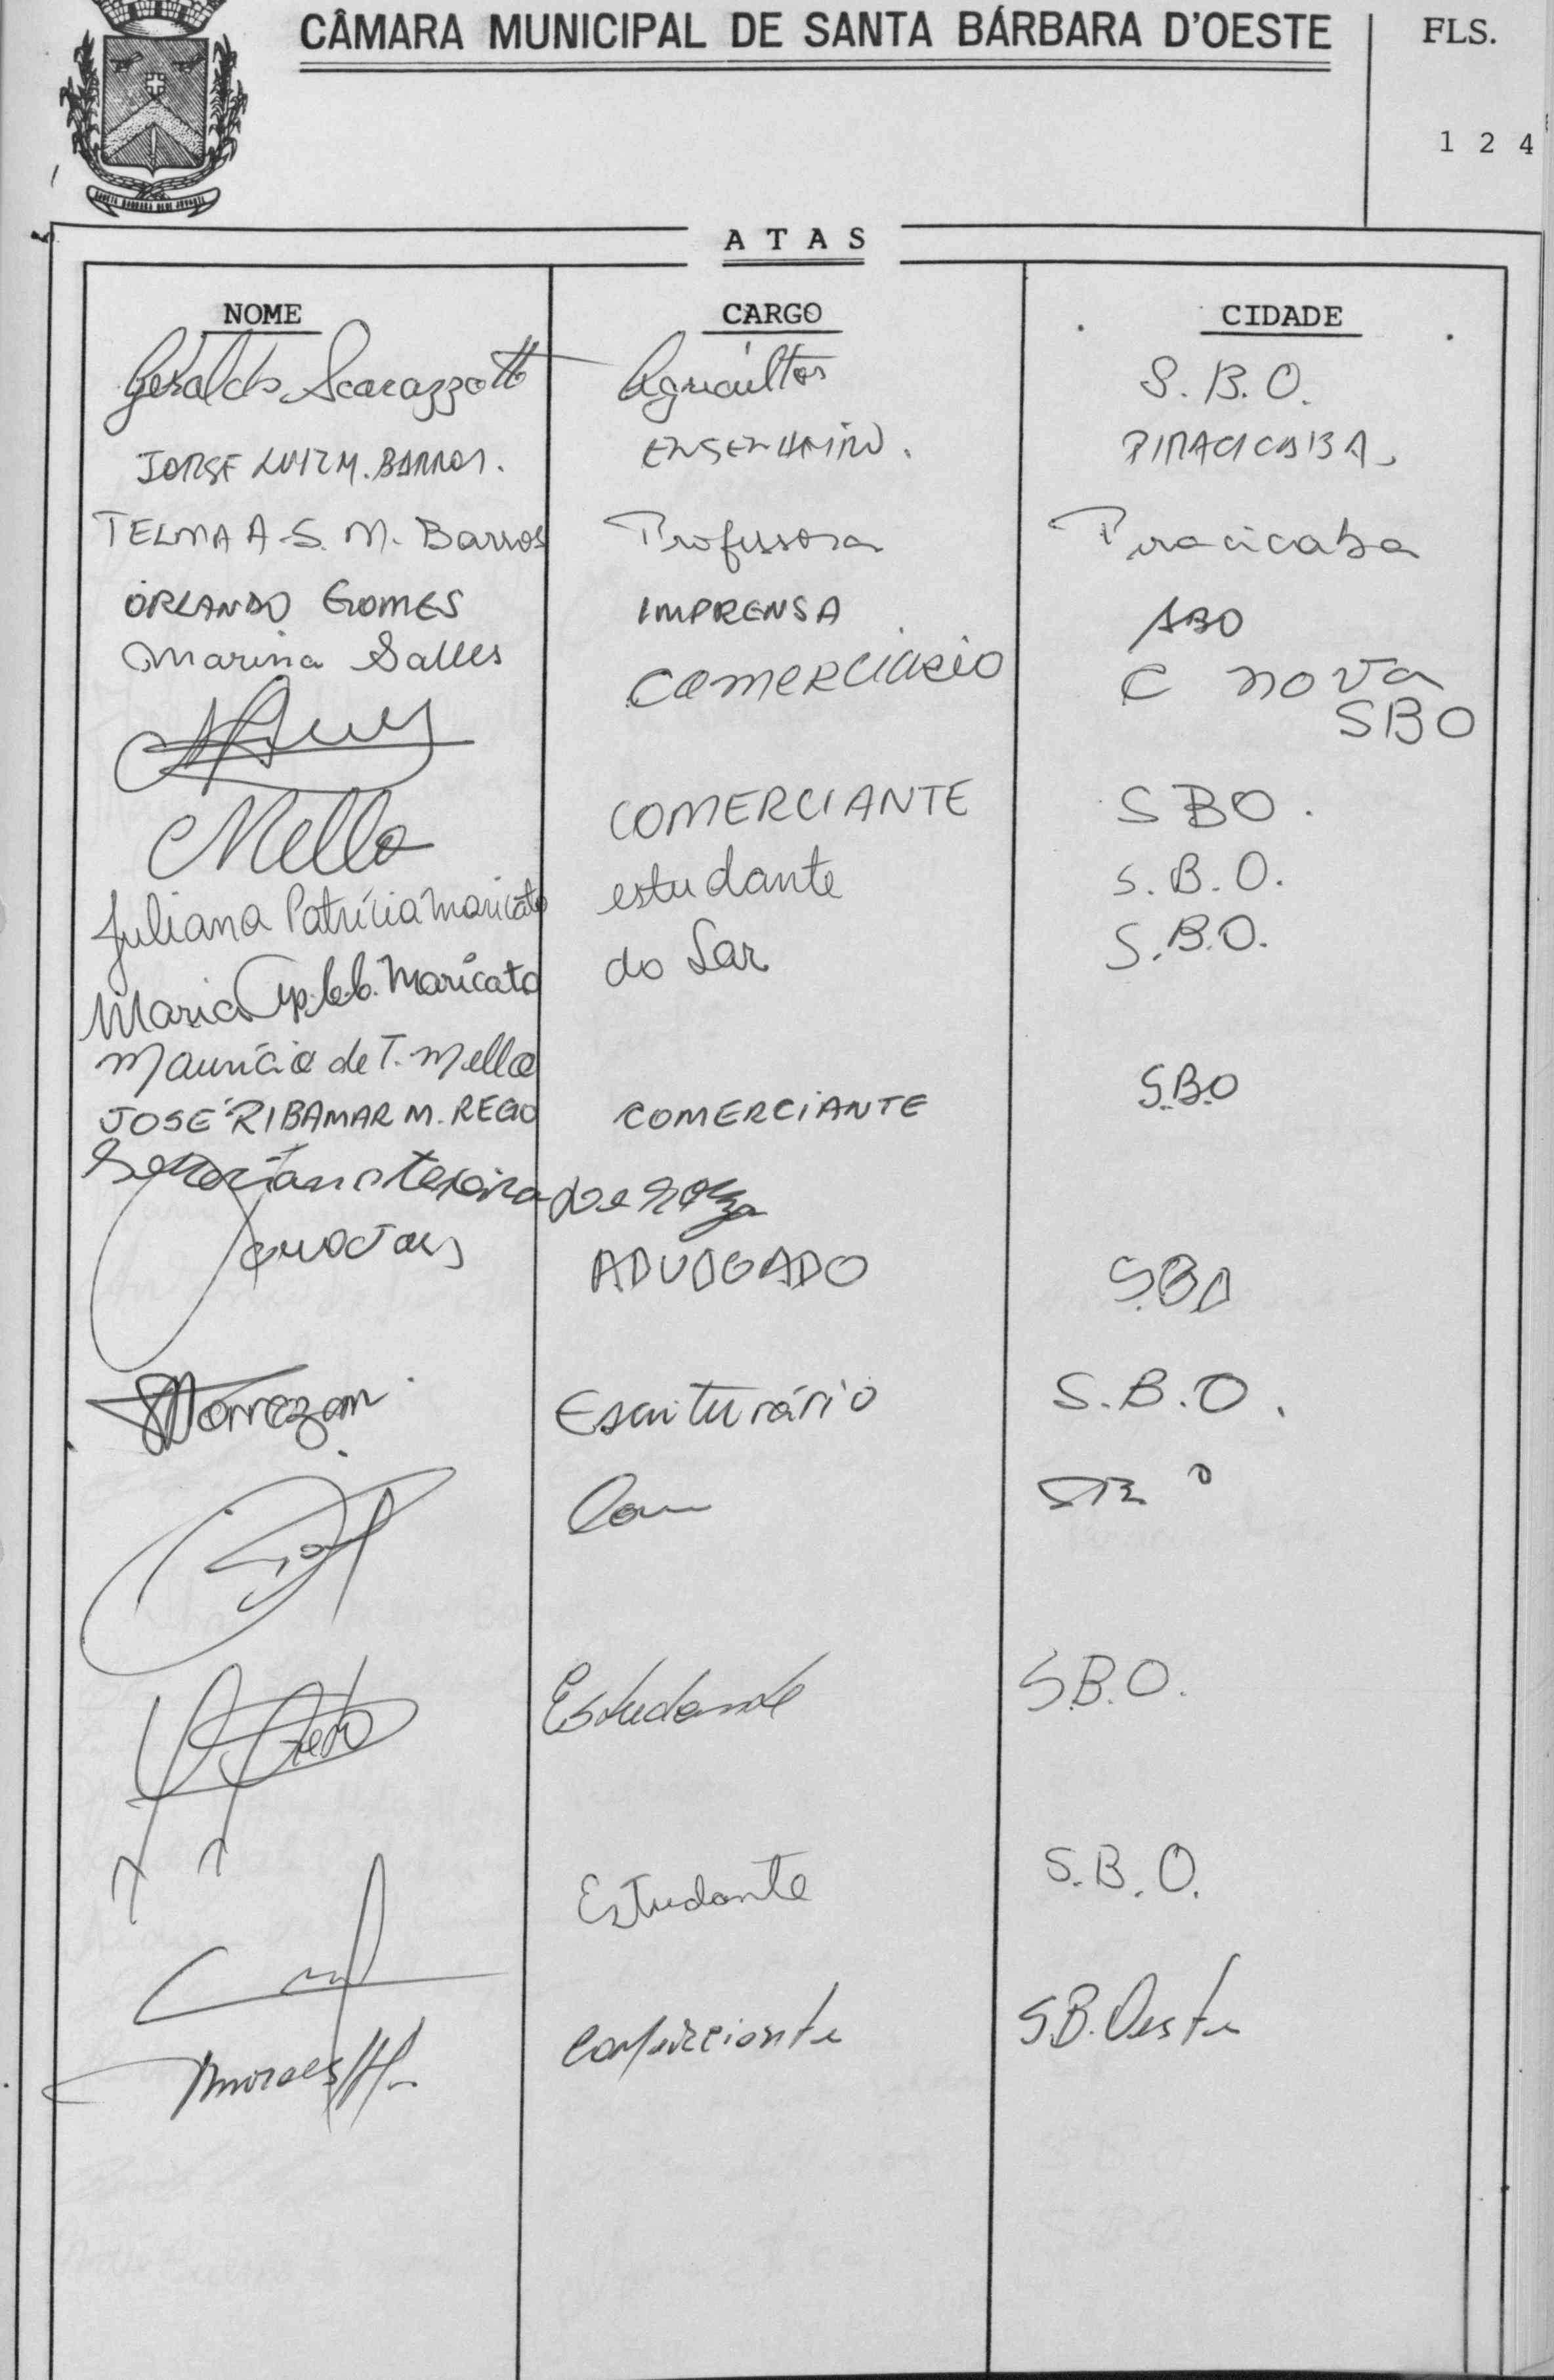 CÂMARA MUNICIPAL DE SANTA BÁRBARA D'OESTE
FLS.
1 2 4
A T A S
NOME CARGO CIDADE
Geraldo Scarazzatti Agricultor S. B. O.
JORGE LUIZ M. BARROS. ENGENHEIRO. PIRACICABA.
TELMA A. S. M. Barros Professora Piracicaba
ORLANDO GOMES IMPRENSA SBO
Marina Salles COMERCIARIO C nova
SBO
Mello COMERCIANTE SBO.
Juliana Patrícia Maricato estudante S. B. O.
Maria Ap. Maricato do Lar S. B. O.
Maurício de T. Mello
JOSÉ RIBAMAR M. REGO COMERCIANTE S.B.O
teixeira de Souza
ADVOGADO SBO
Escriturário S. B. O.
Estudante S.B.O.
Estudante S.B.O.
Moraes Comerciante S.B. Oeste